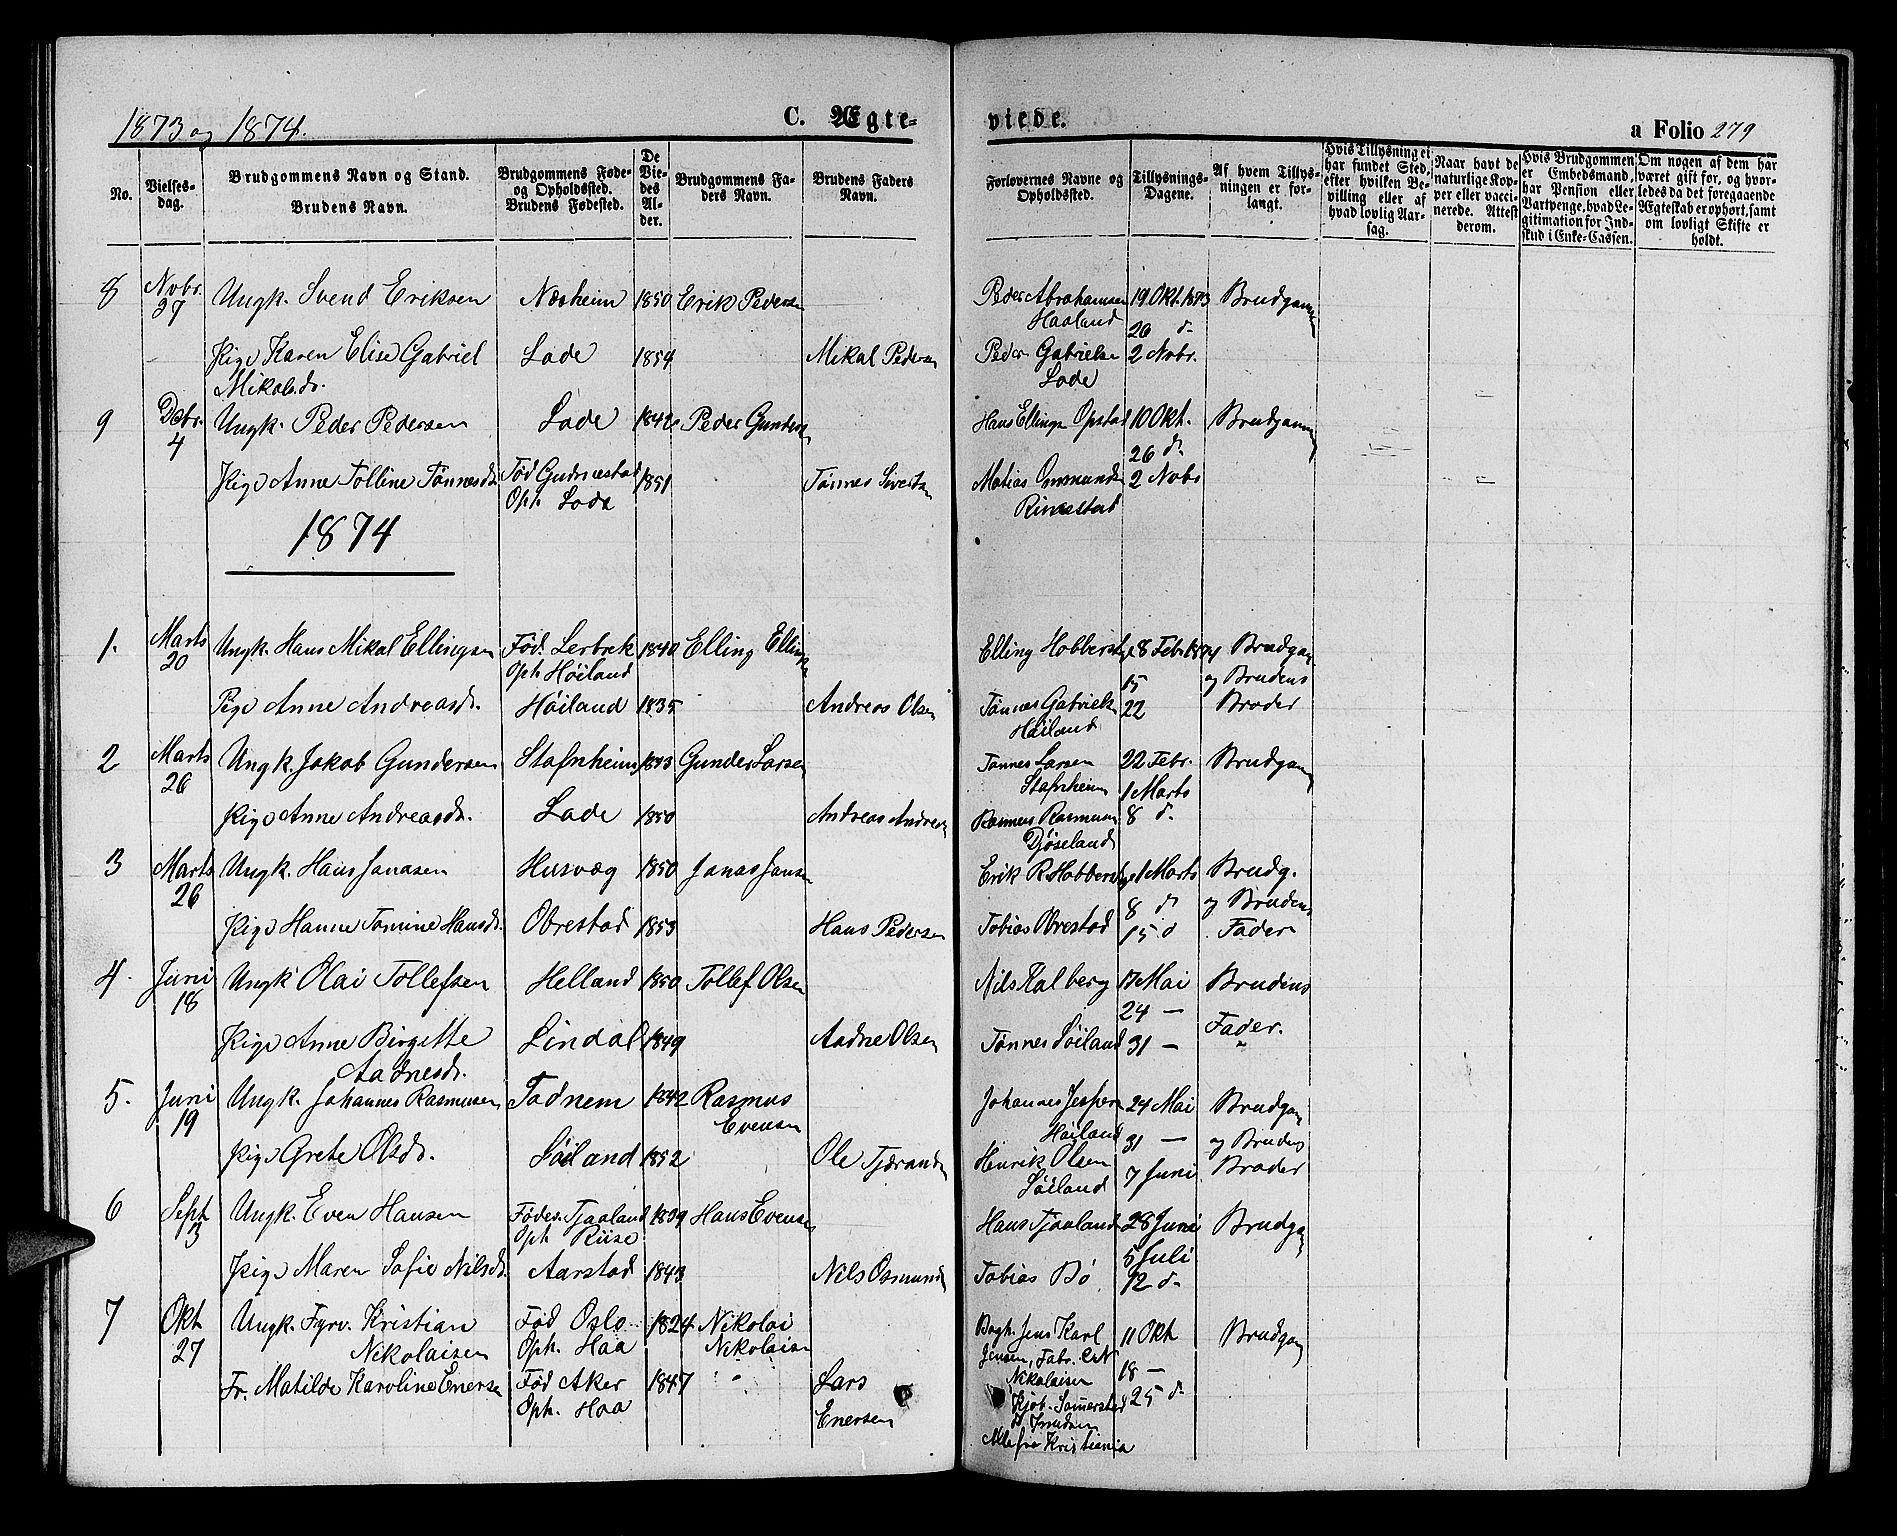 1873 og 1874.
C. Ægte-
viede.
a Folio 279
No.
Vielses-
dag.
Brudgommens Navn og Stand.
Brudens Navn.
Brudgommens Føde-
og Opholdssted.
Brudens Fødested.
De
Vie-
des
Al-
der.
Brudgommens Fa-
ders Navn.
Brudens Faders
Navn.
Forlovernes Navne og
Opholdssted.
Tillysnings-
Dagene.
Af hvem Tillys-
ningen er for-
langt.
Hvis Tillysning ei
har fundet Sted,
efter hvilken Be-
villing eller af
hvad lovlig Aar-
sag.
Naar havt de
naturlige Kop-
per eller vacci-
nerede. Attest
derom.
Hvis Brudgommen
er Embedsmand,
har Pension eller
Vartpenge, hvad Le-
gitimation for Ind-
skud i Enke-Cassen.
Om nogen af dem har
været gift før, og hvor-
ledes da det foregaaende
Ægteskab er ophørt, samt
om lovligt Skifte er
holdt.
8 Novbr. Ungk. Svend Eriksen Næsheim 1850 Erik Pedersen Peder Abrahamsen 19 Okt. 1873 Brudgommen
27 Haaland 26 d.
Pige Karen Elise Gabriel Lode 1854 Mikal Pedersen Peder Gabrielsen 2 Novbr.
Mikalsd. Lode
9 Decbr. Ungk. Peder Pedersen Lode 1842 Peder Gundersen Hans Ellings Opstad 10 Okt. Brudgommen
4 26 d.
Pige Anne Tolline Tønnesd. Fød Gudmestad 1851 Tønnes Sivertsen Matias Ommundsen 2 Novbr
Oph. Lode Rimestad
1874
1. Marts Ungk. Hans Mikal Ellingsen Fød. Lerbrek 1840 Elling Ellings Elling Hobberstad 8 Feb. 1874 Brudgom
20 Oph Høiland 15 og Brudens
Pige Anne Andreasd. Høiland 1835 Andreas Olsen Tønnes Gabrielsen 22 Broder
Høiland
2 Marts Ungk. Jakob Gundersen Stafnheim 1843 Gunder Larsen Tønnes Larsen 22 Febr. Brudgom
26 Stafnheim 1 Marts
Pige Anne Andreasd. Lode 1850 Andreas Andreasen Rasmus Rasmusen 8 d.
Djøseland
3 Marts Ungk. Hans Janasen Husvæg 1850 Janas Jansen Erik R. Hobberstad 1 Marts Brudg.
26 8 d og Brudens
Pige Hanne Tomine Hansd. Obrestad 1853 Hans Pedersen Tobias Obrestad 15 d Fader
4. Juni Ungk Olai Tollefsen Helland 1850 Tollef Olsen Nils Kalberg 17 Mai Brudens
18 24 — Fader.
Pige Anne Birgitte Lindal 1849 Aadne Olsen Tønnes Søiland 31 —
Aadnesd.
5. Juni Ungk. Johannes Rasmusen Todnem 1842 Rasmus Johannes Jespersen 24 Mai Brudgom
19 Evensen Høiland 31 — og Brudens
Pige Grete Olsd. Søiland 1852 Ole Tjørandsen Henrik Olsen 7 Juni Broder
Søiland
6 Sept Ungk. Even Hansen Føder. Tjaaland 1839 Hans Evensen Hans Tjaaland 28 Juni Brudgom
3 Oph Riise 5 Juli
Pige Maren Sofie Nilsd. Aarstad 1843 Nils Osmunds Tobias Bø 12 d.
7 Okt Ungk. Fyrv. Kristian Fød Oslo 1824 Nikolai Bogh. Jens Karl 11 Okt Brudgom
27 Nikolaisen Oph. Haa Nikolaisen Jensen, Fabr. C.N 18 —
Fr. Matilde Karoline Enersen Fød Aker 1847 Lars Nikolaisen 25 d.
Oph. Haa Enersen Kjøb. Sannerstad
Knudsen
Alle fra Kristiania